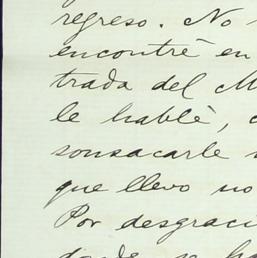 regreso. No
encontrè en
trada del M
le hablè, c
sonsacarle
que llevo no
Por desgraci
donde se ha